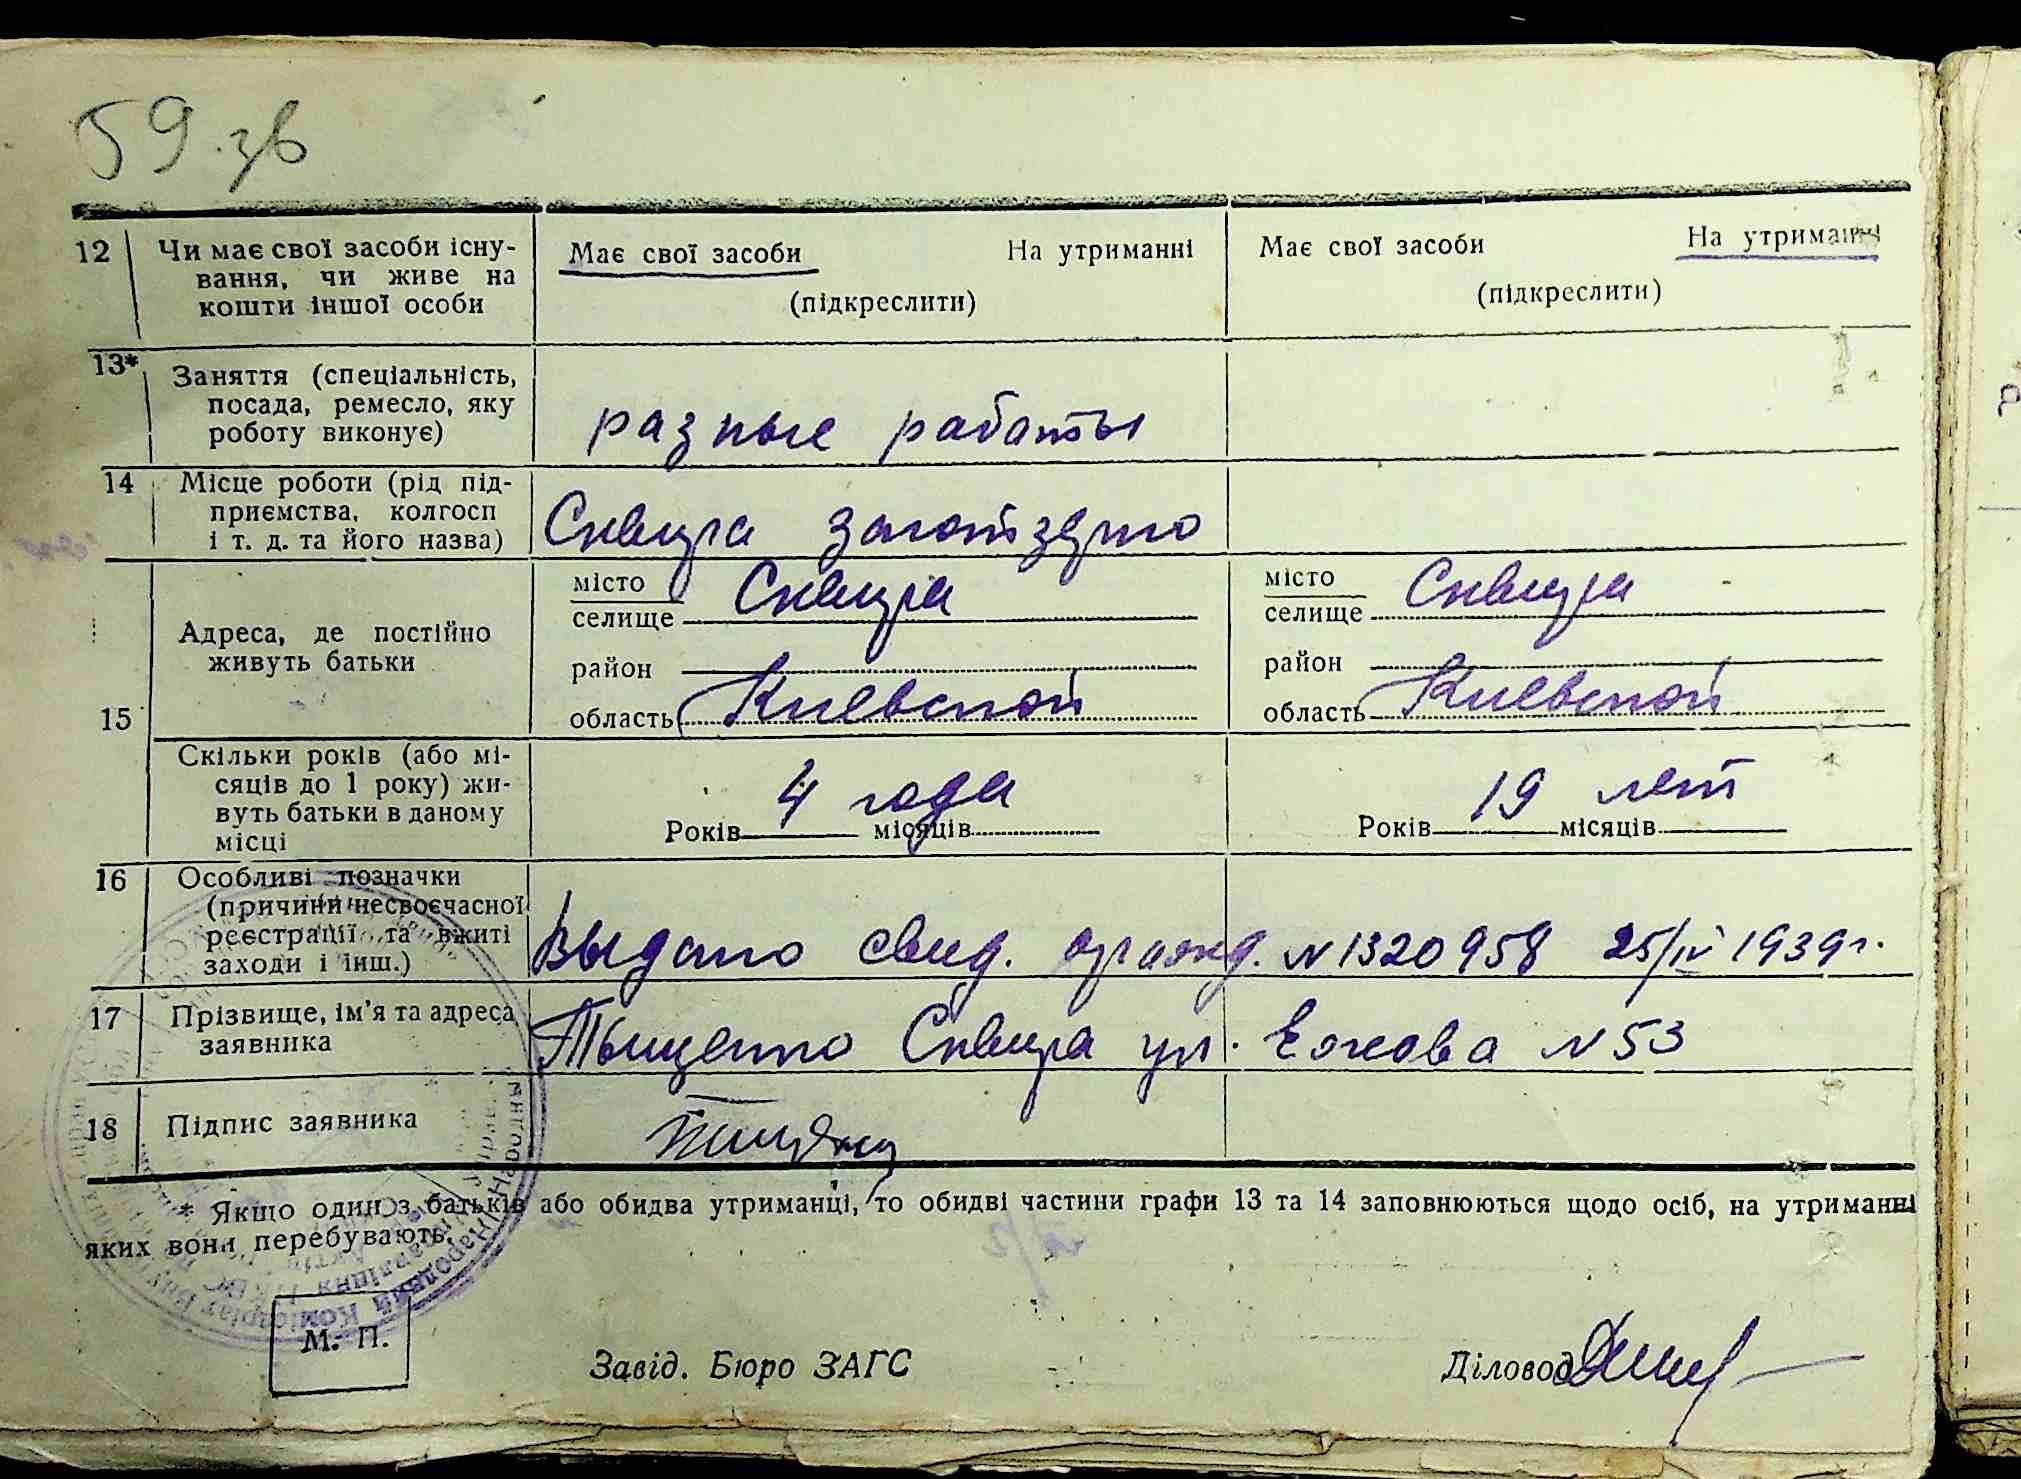 59 зв
12 Чи має свої засоби існу-
вання, чи живе на
кошти іншої особи
Має свої засоби На утриманні
(підкреслити)
Має свої засоби На утриманні
(підкреслити)
13* Заняття (спеціальність,
посада, ремесло, яку
роботу виконує)
разные работы
14 Місце роботи (рід під-
приємства, колгосп
і т. д. та його назва)
Сквира заготзерно
15
Адреса, де постійно
живуть батьки
місто
селище Сквира
район
область Киевской
місто
селище Сквира
район
область Киевской
Скільки років (або мі-
сяців до 1 року) жи-
вуть батьки в даному
місці
4 года
Років місяців
19 лет
Років місяців
16 Особливі позначки
(причини несвоєчасної
реєстрації та вжиті
заходи і інш.)
Выдано свид. о рожд. N 1320958 25/IV 1939 г.
17 Прізвище, ім'я та адреса
заявника
Тыщенко Сквира ул. Ежова N 53
18 Підпис заявника
* Якщо один з батьків або обидва утриманці, то обидві частини графи 13 та 14 заповнюються щодо осіб, на утриманні
яких вони перебувають.
Народний Комісаріат
М. П.
Завід. Бюро ЗАГС
Діловод